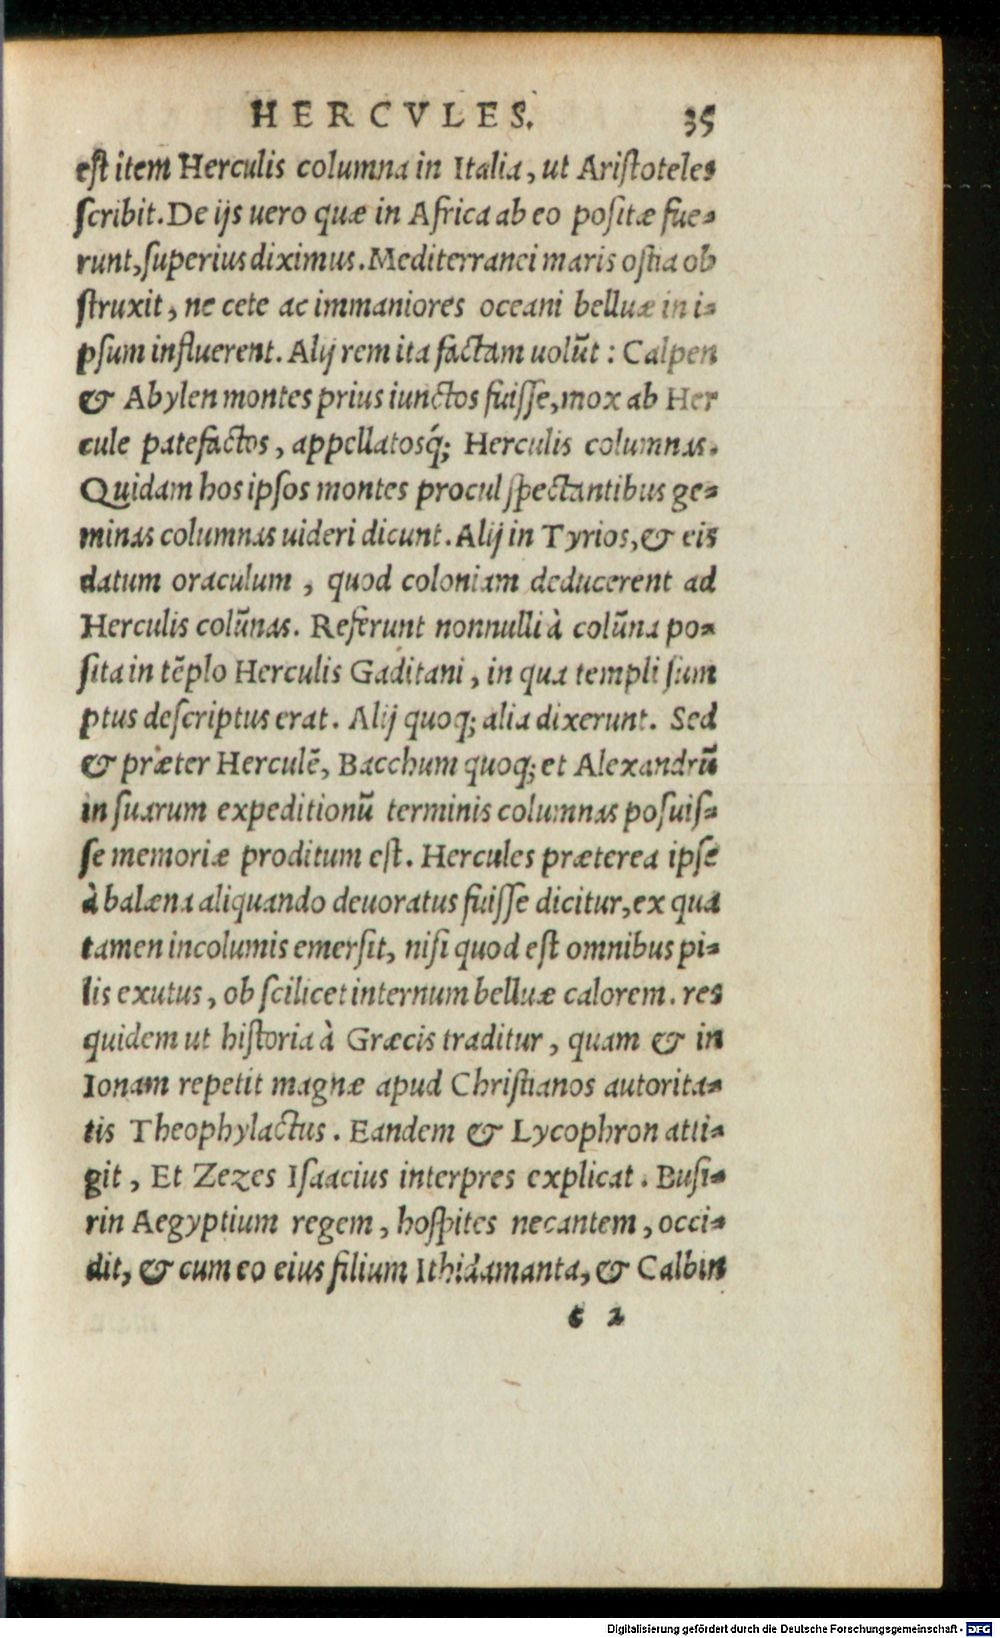 HERCVLES. 35
est item Herculis columna in Italia, ut Aristoteles
scribit. De ijs uero quæ in Africa ab eo positæ fue-
runt, superius diximus. Mediterranei maris ostia ob
struxit, ne cete ac immaniores oceani belluæ in i-
psum influerent. Alij rem ita factam uolũt : Calpen
& Abylen montes prius iunctos fuisse, mox ab Her
cule patefactos, appellatosq́; Herculis columnas.
Quidam hos ipsos montes procul spectantibus ge-
minas columnas uideri dicunt. Alij in Tyrios, & eis
datum oraculum, quod coloniam deducerent ad
Herculis colũnas. Referunt nonnulli à colũna po-
sita in tẽplo Herculis Gaditani, in qua templi sum
ptus descriptus erat. Alij quoq; alia dixerunt. Sed
& præter Herculẽ, Bacchum quoq; et Alexandrũ
in suarum expeditionũ terminis columnas posuis-
se memoriæ proditum est. Hercules præterea ipse
à balæna aliquando deuoratus fuisse dicitur, ex qua
tamen incolumis emersit, nisi quod est omnibus pi-
lis exutus, ob scilicet internum belluæ calorem. res
quidem ut historia à Græcis traditur, quam & in
Ionam repetit magnæ apud Christianos autorita-
tis Theophylactus. Eandem & Lycophron atti-
git, Et Zezes Isaacius interpres explicat. Busi-
rin Aegyptium regem, hospites necantem, occi-
dit, & cum eo eius filium Ithidamanta, & Calbin
c 2
Digitalisierung gefördert durch die Deutsche Forschungsgemeinschaft - DFG